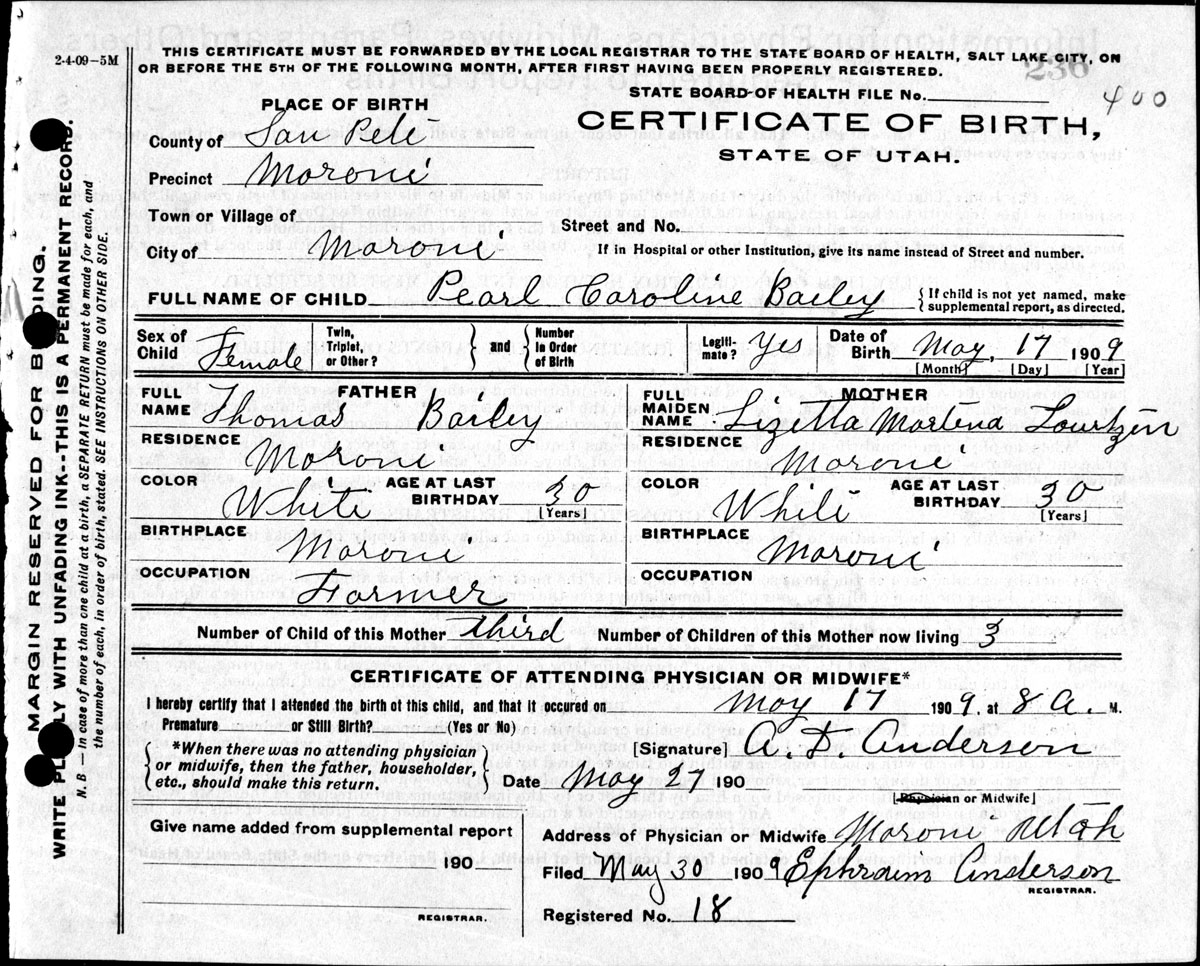 2-4-09-5M
THIS CERTIFICATE MUST BE FORWARDED BY THE LOCAL REGISTRAR TO THE STATE BOARD OF HEALTH, SALT LAKE CITY, ON
OR BEFORE THE 5TH OF THE FOLLOWING MONTH, AFTER FIRST HAVING BEEN PROPERLY REGISTERED.
236
STATE BOARD OF HEALTH FILE No. 400
PLACE OF BIRTH
CERTIFICATE OF BIRTH,
STATE OF UTAH.
County of San Pete
Precinct Moroni
Town or Village of
Street and No.
City of Moroni
If in Hospital or other Institution, give its name instead of Street and number.
FULL NAME OF CHILD Pearl Caroline Bailey {If child is not yet named, make
supplemental report, as directed.
Sex of Child Female
Twin, Triplet, or Other?
and
Number in Order of Birth
Legiti-mate? Yes
Date of Birth May, 17 1909
[Month] [Day] [Year]
FATHER
FULL NAME Thomas Bailey
RESIDENCE Moroni
COLOR White
AGE AT LAST BIRTHDAY 30
[Years]
BIRTHPLACE Moroni
OCCUPATION Farmer
MOTHER
FULL MAIDEN NAME Lizetta Martena Lourtzen
RESIDENCE Moroni
COLOR White
AGE AT LAST BIRTHDAY 30
[Years]
BIRTHPLACE Moroni
OCCUPATION
Number of Child of this Mother third Number of Children of this Mother now living 3
CERTIFICATE OF ATTENDING PHYSICIAN OR MIDWIFE*
I hereby certify that I attended the birth of this child, and that it occured on May 17 1909. at 8 A. M.
Premature or Still Birth? (Yes or No)
{*When there was no attending physician
or midwife, then the father, householder,
etc., should make this return.}
[Signature] A D Anderson
Date May 27 190
[Physician or Midwife]
Give name added from supplemental report
190
REGISTRAR.
Address of Physician or Midwife Moroni Utah
Filed May 30 1909 Ephraim Anderson
REGISTRAR.
Registered No. 18
MARGIN RESERVED FOR BINDING.
WRITE PLAINLY WITH UNFADING INK--THIS IS A PERMANENT RECORD.
N. B.—In case of more than one child at a birth, a SEPARATE RETURN must be made for each, and
the number of each, in order of birth, stated. SEE INSTRUCTIONS ON OTHER SIDE.